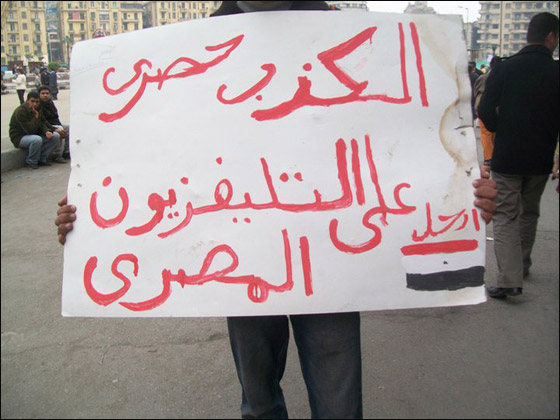 الكذب حصرى
على التليفزيون
المصرى
ارحل